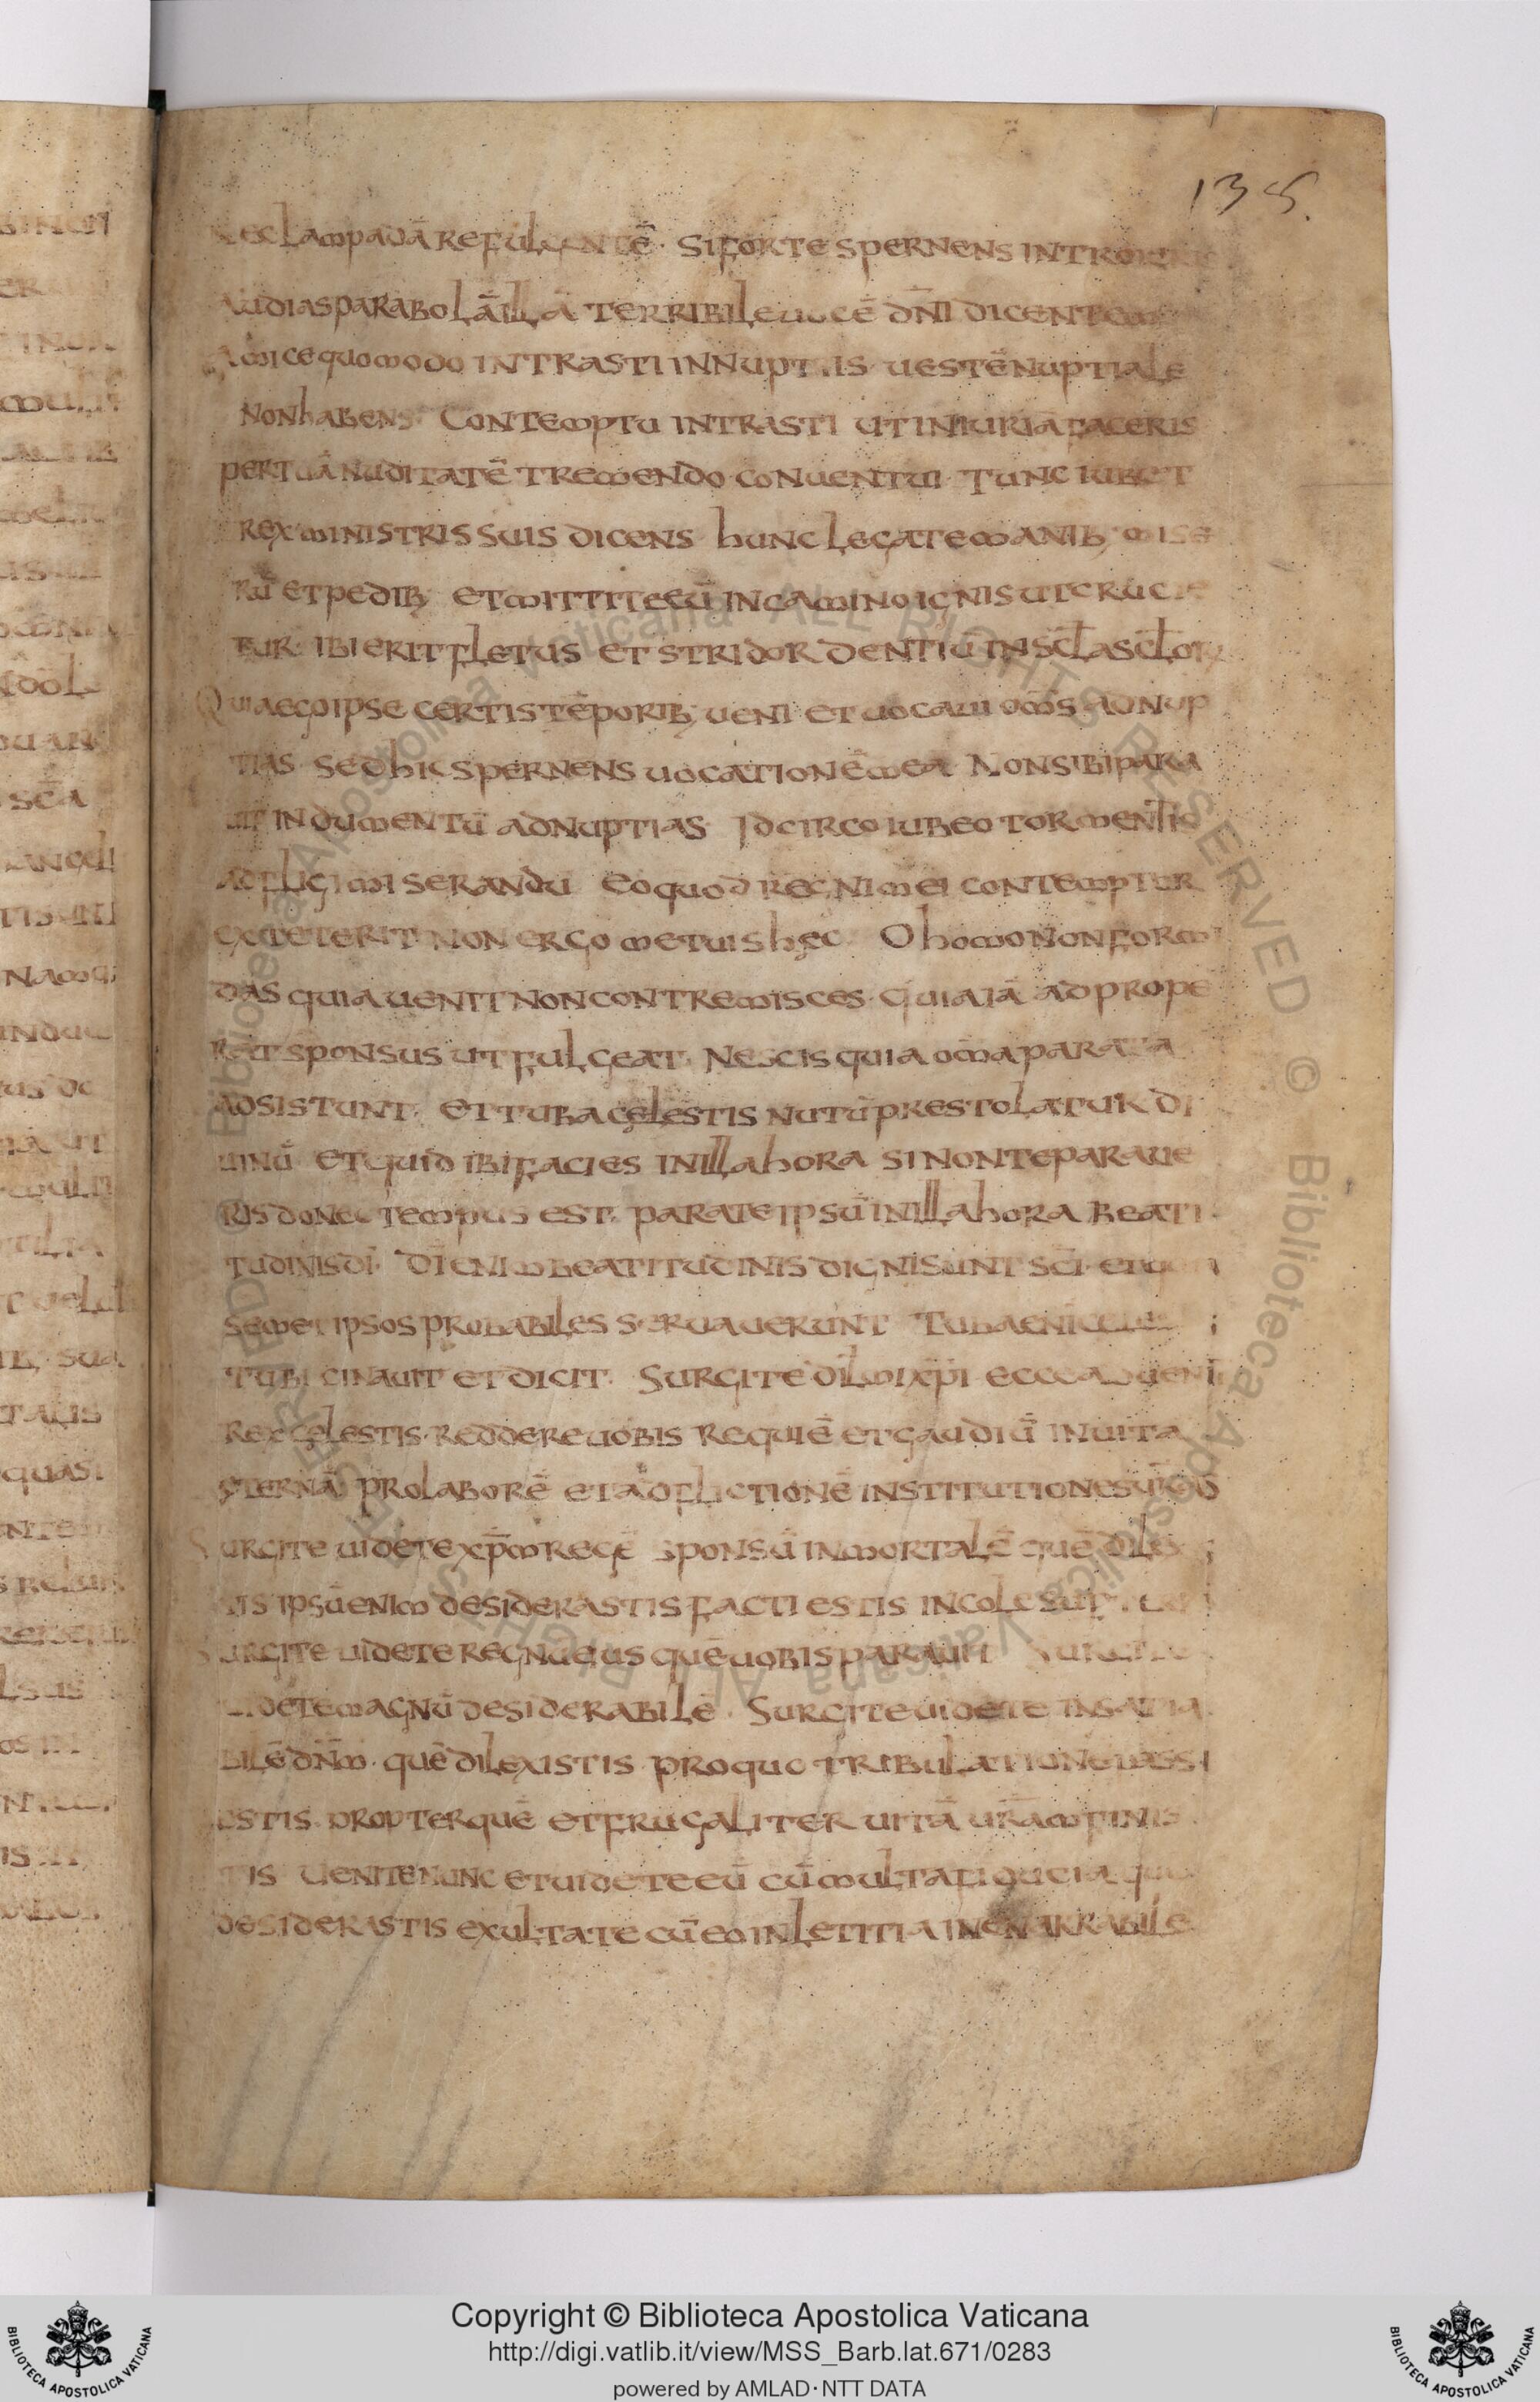 135.
nec lampadā refulgentē · si forte spernens introieris
audias parabolā illā terribile uocē dn̄i dicentem
Amice quomodo intrasti in nuptiis uestē nuptiale
non habens · Contemptu intrasti ut iniuriā faceris
per tuā nuditatē tremendo conuentui · Tunc iubet
rex ministris suis dicens hunc legate manib; mise
rū et pedib; et mittite eū in camino ignis ut crucie
tur · ibi erit fletus et stridor dentiū in scl̄a scl̄or
Quia ego ipse certis tēporib; ueni et uocaui om̄s ad nup
tias · sed hic spernens uocationē mea Non sibi para
uit indumentū ad nuptias Idcirco iubeo tormentis
adfligi miserandū eo quod regni mei contemptor
exteterit · non ergo metuis hęc · O homo non formi
das quia uenit non contremisces · quia iā adprope
ret sponsus ut fulgeat · Nescis quia om̄a parata
adsistunt · et tuba cęlestis nutū prestolatur di
uinū et quid ibi facies in illa hora si non te paraue
ris donec tempus est · para te ipsū in illa hora beati
tudinis dī · Dī enim beatitudinis digni sunt scī · et qui
semetipsos probabiles seruauerunt Tuba enī
tubicinauit et dicit · Surgite dil̄mi xp̄i ecce aduenit
rex cęlestis · reddere uobis requiē et gaudiū in uita
ęternā prolaborē et adflictionē institutiones
Surgite uidete xp̄m regē sponsū inmortalē quē dilexis
tis ipsū enim desiderastis facti estis incole
Surgite uidete regnū eius quē uobis parauit Surgite
uidete magnū desiderabilē · Surgite uidete insatia
bilē dn̄m · quē dilexistis pro quo tribulatione passi
estis · propter quē et frugaliter uitā ur̄am finis
tis Uenite nunc et uidete eū cū multa fiducia quē
desiderastis exultate cū eo in letitia inenarrabile
© Biblioteca Apostolica Vaticana ALL RIGHTS RESERVED
Copyright © Biblioteca Apostolica Vaticana
http://digi.vatlib.it/view/MSS_Barb.lat.671/0283
powered by AMLAD·NTT DATA
BIBLIOTECA APOSTOLICA VATICANA
BIBLIOTECA APOSTOLICA VATICANA